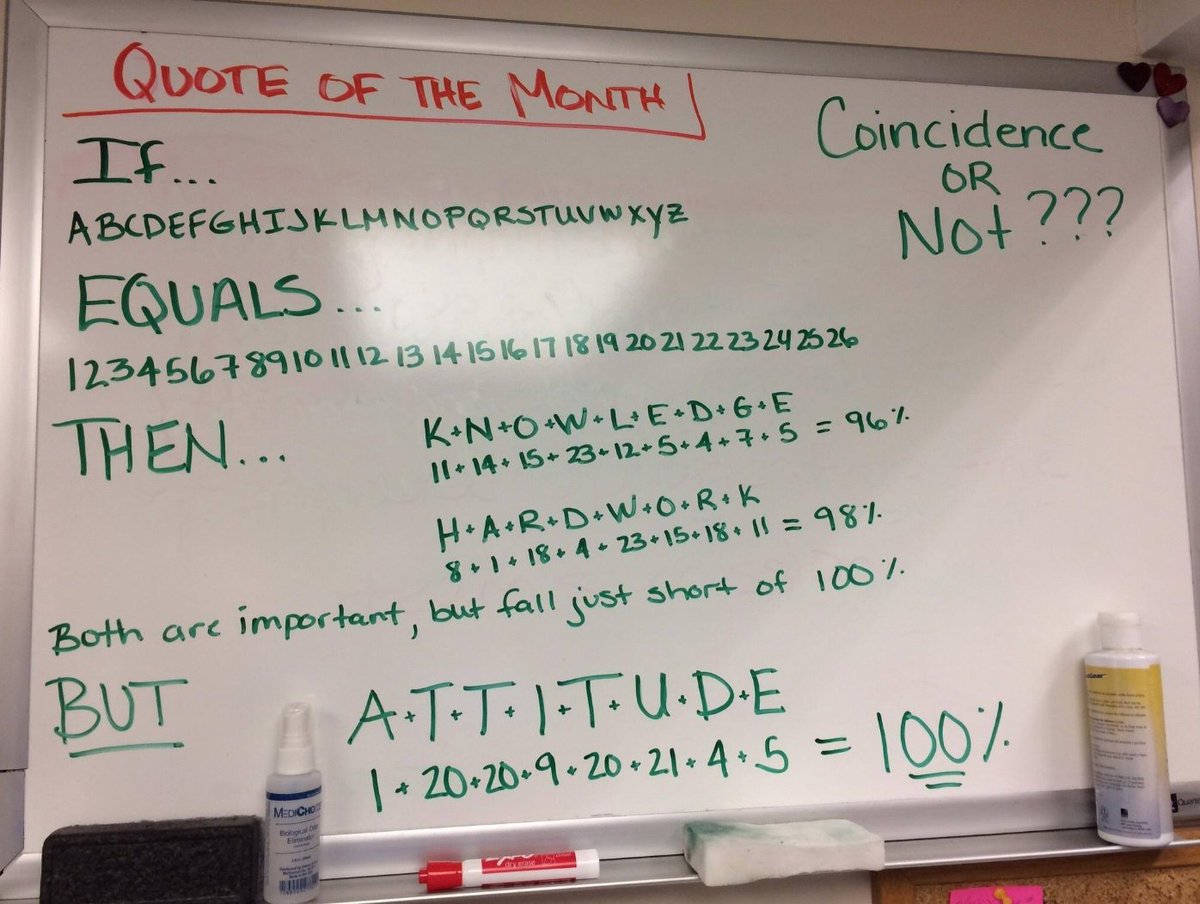 QUOTE OF THE MONTH
Coincidence
OR
Not ???
If...
ABCDEFGHIJKLMNOPQRSTUVWXYZ
EQUALS...
1 2 3 4 5 6 7 8 9 10 11 12 13 14 15 16 17 18 19 20 21 22 23 24 25 26
THEN...
K+N+O+W+L+E+D+G+E
11+14+15+23+12+5+4+7+5 = 96%
H+A+R+D+W+O+R+K
8+1+18+4+23+15+18+11 = 98%
Both are important, but fall just short of 100%
BUT
A+T+T+I+T+U+D+E
1+20+20+9+20+21+4+5 = 100%
Biological Odor
Eliminator
dry erase